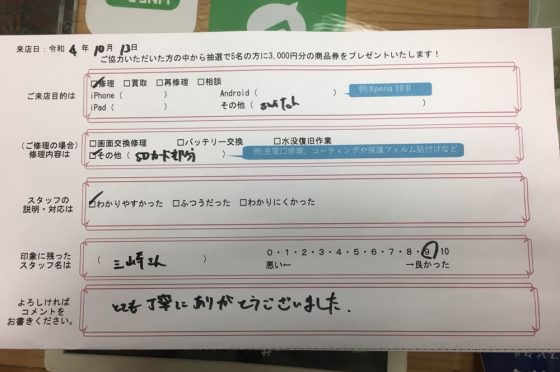 LINE
来店日：令和 4 年 10 月 13 日
ご協力いただいた方の中から抽選で5名の方に3,000円分の商品券をプレゼントいたします！
ご来店目的は
☑修理 □買取 □再修理 □相談
iPhone（ ） Android（ ） 例:Xperia 10Ⅱ
iPad（ ） その他（ switch ）
（ご修理の場合）
修理内容は
□画面交換修理 □バッテリー交換 □水没復旧作業
☑その他（ SDカード部分 ） 例:充電口修理、コーティングや保護フィルム貼付けなど
スタッフの
説明・対応は
☑わかりやすかった □ふつうだった □わかりにくかった
印象に残った
スタッフ名は
（ 三崎さん ）
0・1・2・3・4・5・6・7・8・9・10
悪い← →良かった
よろしければ
コメントを
お書きください。
とても丁寧にありがとうございました、